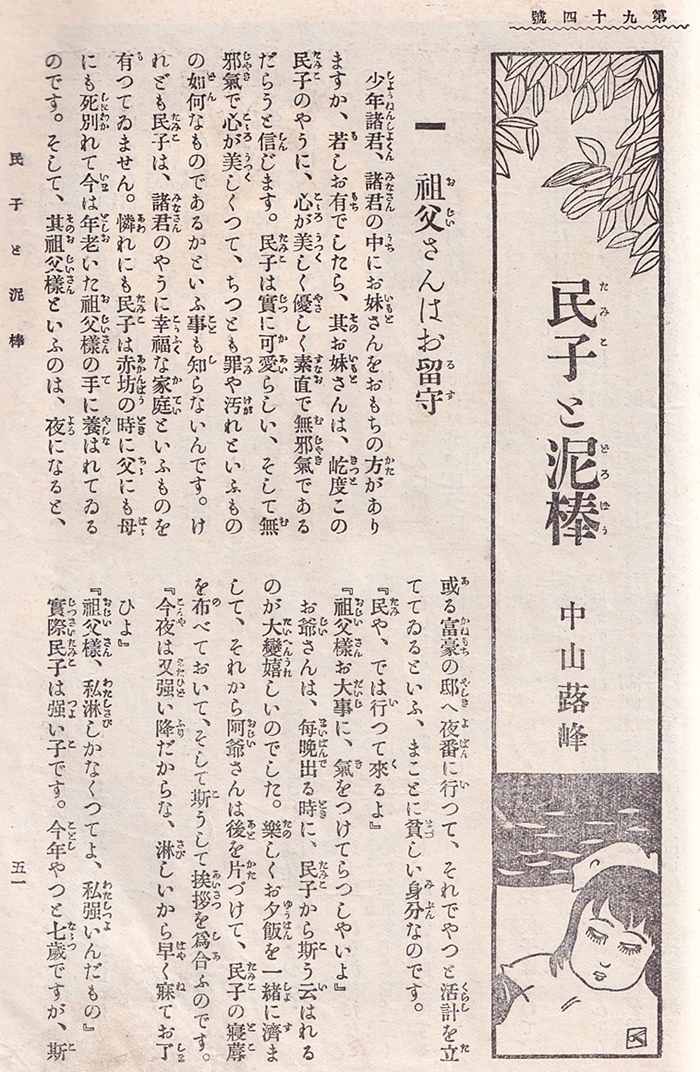 號四十九第
民子と泥棒
中山蕗峰
一　祖父さんはお留守
少年諸君、諸君の中にお妹さんをおもちの方があり
ますか、若しお有でしたら、其お妹さんは、屹度この
民子のやうに、心が美しく優しく素直で無邪氣である
だらうと信じます。民子は實に可愛らしい、そして無
邪氣で心が美しくつて、ちつとも罪や汚れといふもの
の如何なものであるかといふ事も知らないんです。け
れども民子は、諸君のやうに幸福な家庭といふものを
有つてゐません。憐れにも民子は赤坊の時に父にも母
にも死別れて今は年老いた祖父樣の手に養はれてゐる
のです。そして、其祖父樣といふのは、夜になると、
或る富豪の邸へ夜番に行つて、それでやつと活計を立
ててゐるといふ、まことに貧しい身分なのです。
『民や、では行つて來るよ』
『祖父樣お大事に、氣をつけてらつしやいよ』
お爺さんは、每晩出る時に、民子から斯う云はれる
のが大變嬉しいのでした。樂しくお夕飯を一緒に濟ま
して、それから阿爺さんは後を片づけて、民子の寢蓐
を布べておいて、そして斯うして挨拶を爲合ふのです。
『今夜は又强い降だからな、淋しいから早く寐てお了
ひよ』
『祖父樣、私淋しかなくつてよ、私强いんだもの』
實際民子は强い子です。今年やつと七歲ですが、斯
民子と泥棒
五一